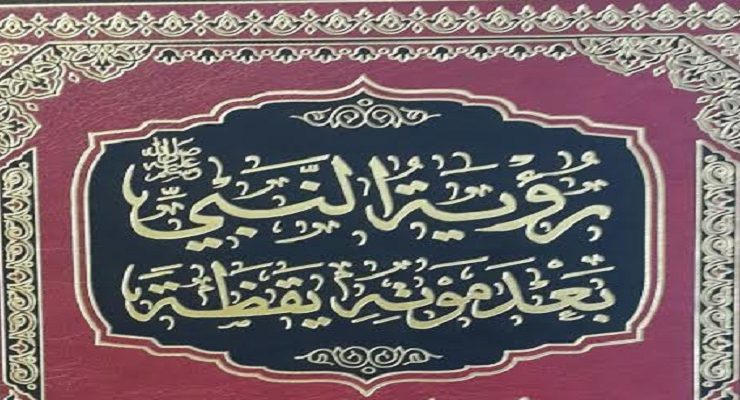 رُؤْيَةُ النَّبِيِّ ﷺ
بَعْدَ مَوْتِهِ يَقَظَةً